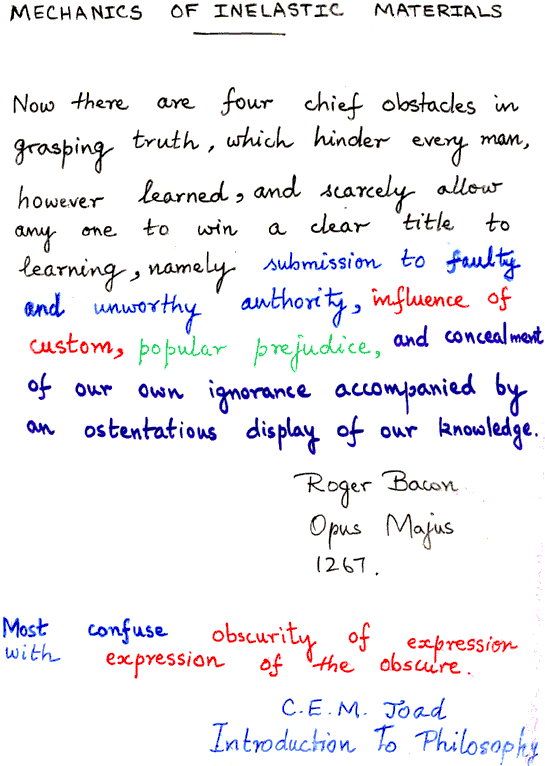 MECHANICS OF INELASTIC MATERIALS
Now there are four chief obstacles in
grasping truth, which hinder every man,
however learned, and scarcely allow
any one to win a clear title to
learning, namely submission to faulty
and unworthy authority, influence of
custom, popular prejudice, and concealment
of our own ignorance accompanied by
an ostentatious display of our knowledge.
Roger Bacon
Opus Majus
1267.
Most confuse obscurity of expression
with expression of the obscure.
C.E.M. Joad
Introduction To Philosophy